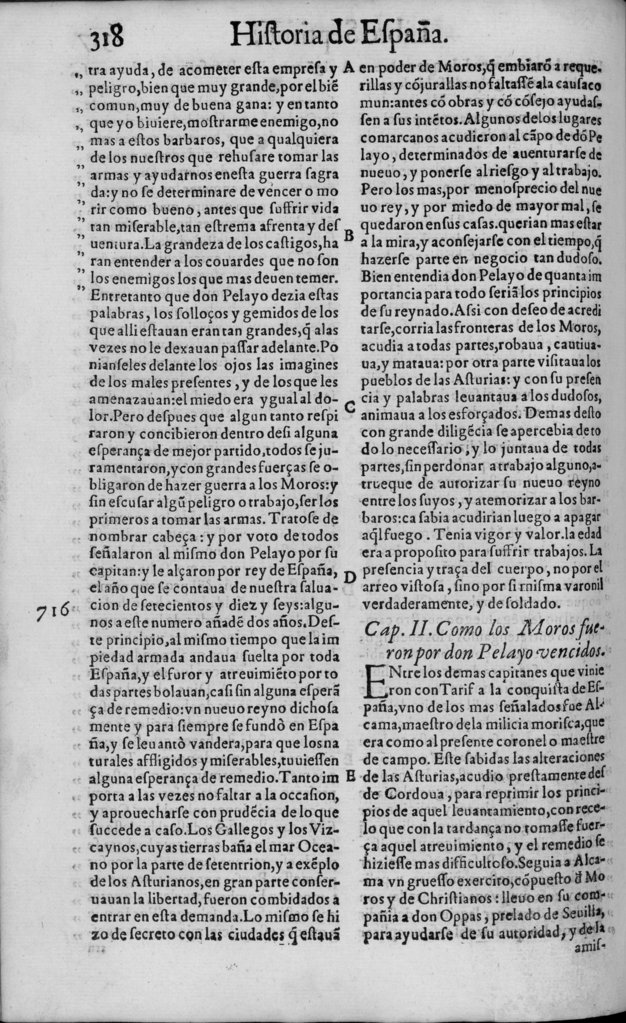 318 Hiſtoria de Eſpaña.
„ tra ayuda, de acometer eſta empreſa y
„ peligro, bien que muy grande, por el biẽ
„ comun, muy de buena gana: y en tanto
„ que yo biuiere, moſtrarme enemigo, no
„ mas a eſtos barbaros, que a qualquiera
„ de los nueſtros que rehuſare tomar las
„ armas y ayudarnos eneſta guerra ſagra
„ da: y no ſe determinare de vencer o mo
„ rir como bueno, antes que ſuffrir vida
„ tan miſerable, tan eſtrema afrenta y deſ
„ uentura. La grandeza de los caſtigos, ha
„ ran entender a los couardes que no ſon
„ los enemigos los que mas deuen temer.
Entretanto que don Pelayo dezia eſtas
palabras, los ſolloços y gemidos de los
que alli eſtauan eran tan grandes, q̃ alas
vezes no le dexauan paſſar adelante. Po
nianſeles delante los ojos las imagines
de los males preſentes, y de los que les
amenazauan: el miedo era ygual al do-
lor. Pero deſpues que algun tanto reſpi
raron y concibieron dentro deſi alguna
eſperança de mejor partido, todos ſe ju-
ramentaron, y con grandes fuerças ſe o-
bligaron de hazer guerra a los Moros: y
ſin eſcuſar algũ peligro o trabajo, ſer los
primeros a tomar las armas. Tratoſe de
nombrar cabeça: y por voto de todos
ſeñalaron al miſmo don Pelayo por ſu
capitan: y le alçaron por rey de Eſpaña,
el año que ſe contaua de nueſtra ſalua-
716 cion de ſetecientos y diez y ſeys: algu-
nos a eſte numero añadẽ dos años. Deſ-
te principio, al miſmo tiempo que la im
piedad armada andaua ſuelta por toda
Eſpaña, y el furor y atreuimiẽto por to
das partes bolauan, caſi ſin alguna eſperã
ça de remedio: vn nueuo reyno dichoſa
mente y para ſiempre ſe fundò en Eſpa
ña, y ſe leuantò vandera, para que los na
turales affligidos y miſerables, tuuieſſen
alguna eſperança de remedio. Tanto im
porta a las vezes no faltar a la occaſion,
y aprouecharſe con prudẽcia de lo que
ſuccede a caſo. Los Gallegos y los Viz-
caynos, cuyas tierras baña el mar Ocea-
no por la parte de ſetentrion, y a exẽplo
de los Aſturianos, en gran parte conſer-
uauan la libertad, fueron combidados a
entrar en eſta demanda. Lo miſmo ſe hi
zo de ſecreto con las ciudades q̃ eſtauã
A en poder de Moros, q̃ embiarõ a reque-
rillas y cójurallas no faltaſſé ala cauſa co
mun: antes có obras y có cóſejo ayudaſ-
ſen a ſus intẽtos. Algunos de los lugares
comarcanos acudieron al cãpo de dó Pe
layo, determinados de auenturarſe de
nueuo, y ponerſe al rieſgo y al trabajo.
Pero los mas, por menoſprecio del nue
uo rey, y por miedo de mayor mal, ſe
quedaron en ſus caſas. querian mas eſtar
B a la mira, y aconſejarſe con el tiempo, q̃
hazerſe parte en negocio tan dudoſo.
Bien entendia don Pelayo de quanta im
portancia para todo ſeriã los principios
de ſu reynado. Aſsi con deſeo de acredi
tarſe, corria las fronteras de los Moros,
acudia a todas partes, robaua, cautiua-
ua, y mataua: por otra parte viſitaua los
pueblos de las Aſturias: y con ſu preſen
cia y palabras leuantaua a los dudoſos,
C animaua a los esforçados. Demas deſto
con grande diligẽcia ſe apercebia de to
do lo neceſſario, y lo juntaua de todas
partes, ſin perdonar a trabajo alguno, a-
trueque de autorizar ſu nueuo reyno
entre los ſuyos, y atemorizar a los bar-
baros: ca ſabia acudirian luego a apagar
aq̃l fuego. Tenia vigor y valor. la edad
era a propoſito para ſuffrir trabajos. La
preſencia y traça del cuerpo, no por el
D arreo viſtoſa, ſino por ſi miſma varonil
verdaderamente, y de ſoldado.
Cap. II. Como los Moros fue-
ron por don Pelayo vencidos.
ENtre los demas capitanes que vinie
ron con Tarif a la conquiſta de Eſ-
paña, vno de los mas ſeñalados fue Al-
cama, maeſtro de la milicia moriſca, que
era como al preſente coronel o maeſtre
de campo. Eſte ſabidas las alteraciones
E de las Aſturias, acudio preſtamente deſ
de Cordoua, para reprimir los princi-
pios de aquel leuantamiento, con rece-
lo que con la tardança no tomaſſe fuer-
ça aquel atreuimiento, y el remedio ſe
hizieſſe mas difficultoſo. Seguia a Alca-
ma vn grueſſo exercito, cõpueſto d̃ Mo
ros y de Chriſtianos: lleuo en ſu com-
pañia a don Oppas, prelado de Seuilla,
para ayudarſe de ſu autoridad, y de la
amiſ-